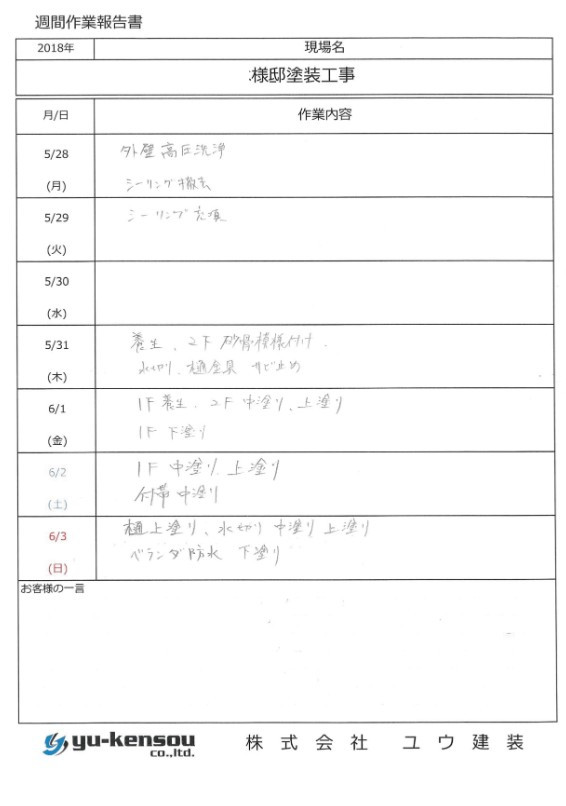 週間作業報告書
2018年 現場名
様邸塗装工事
月/日 作業内容
5/28 外壁高圧洗浄
(月) シーリング撤去
5/29 シーリング充填
(火)
5/30
(水)
5/31 養生、2F 砂骨模様付け、
(木) 水切り、樋金具 サビ止め
6/1 1F養生、2F 中塗り、上塗り
(金) 1F 下塗り
6/2 1F 中塗り 上塗り
(土) 付帯 中塗り
6/3 樋上塗り、水切り 中塗り 上塗り
(日) ベランダ防水 下塗り
お客様の一言
yu-kensou co.,ltd. 株式会社 ユウ建装